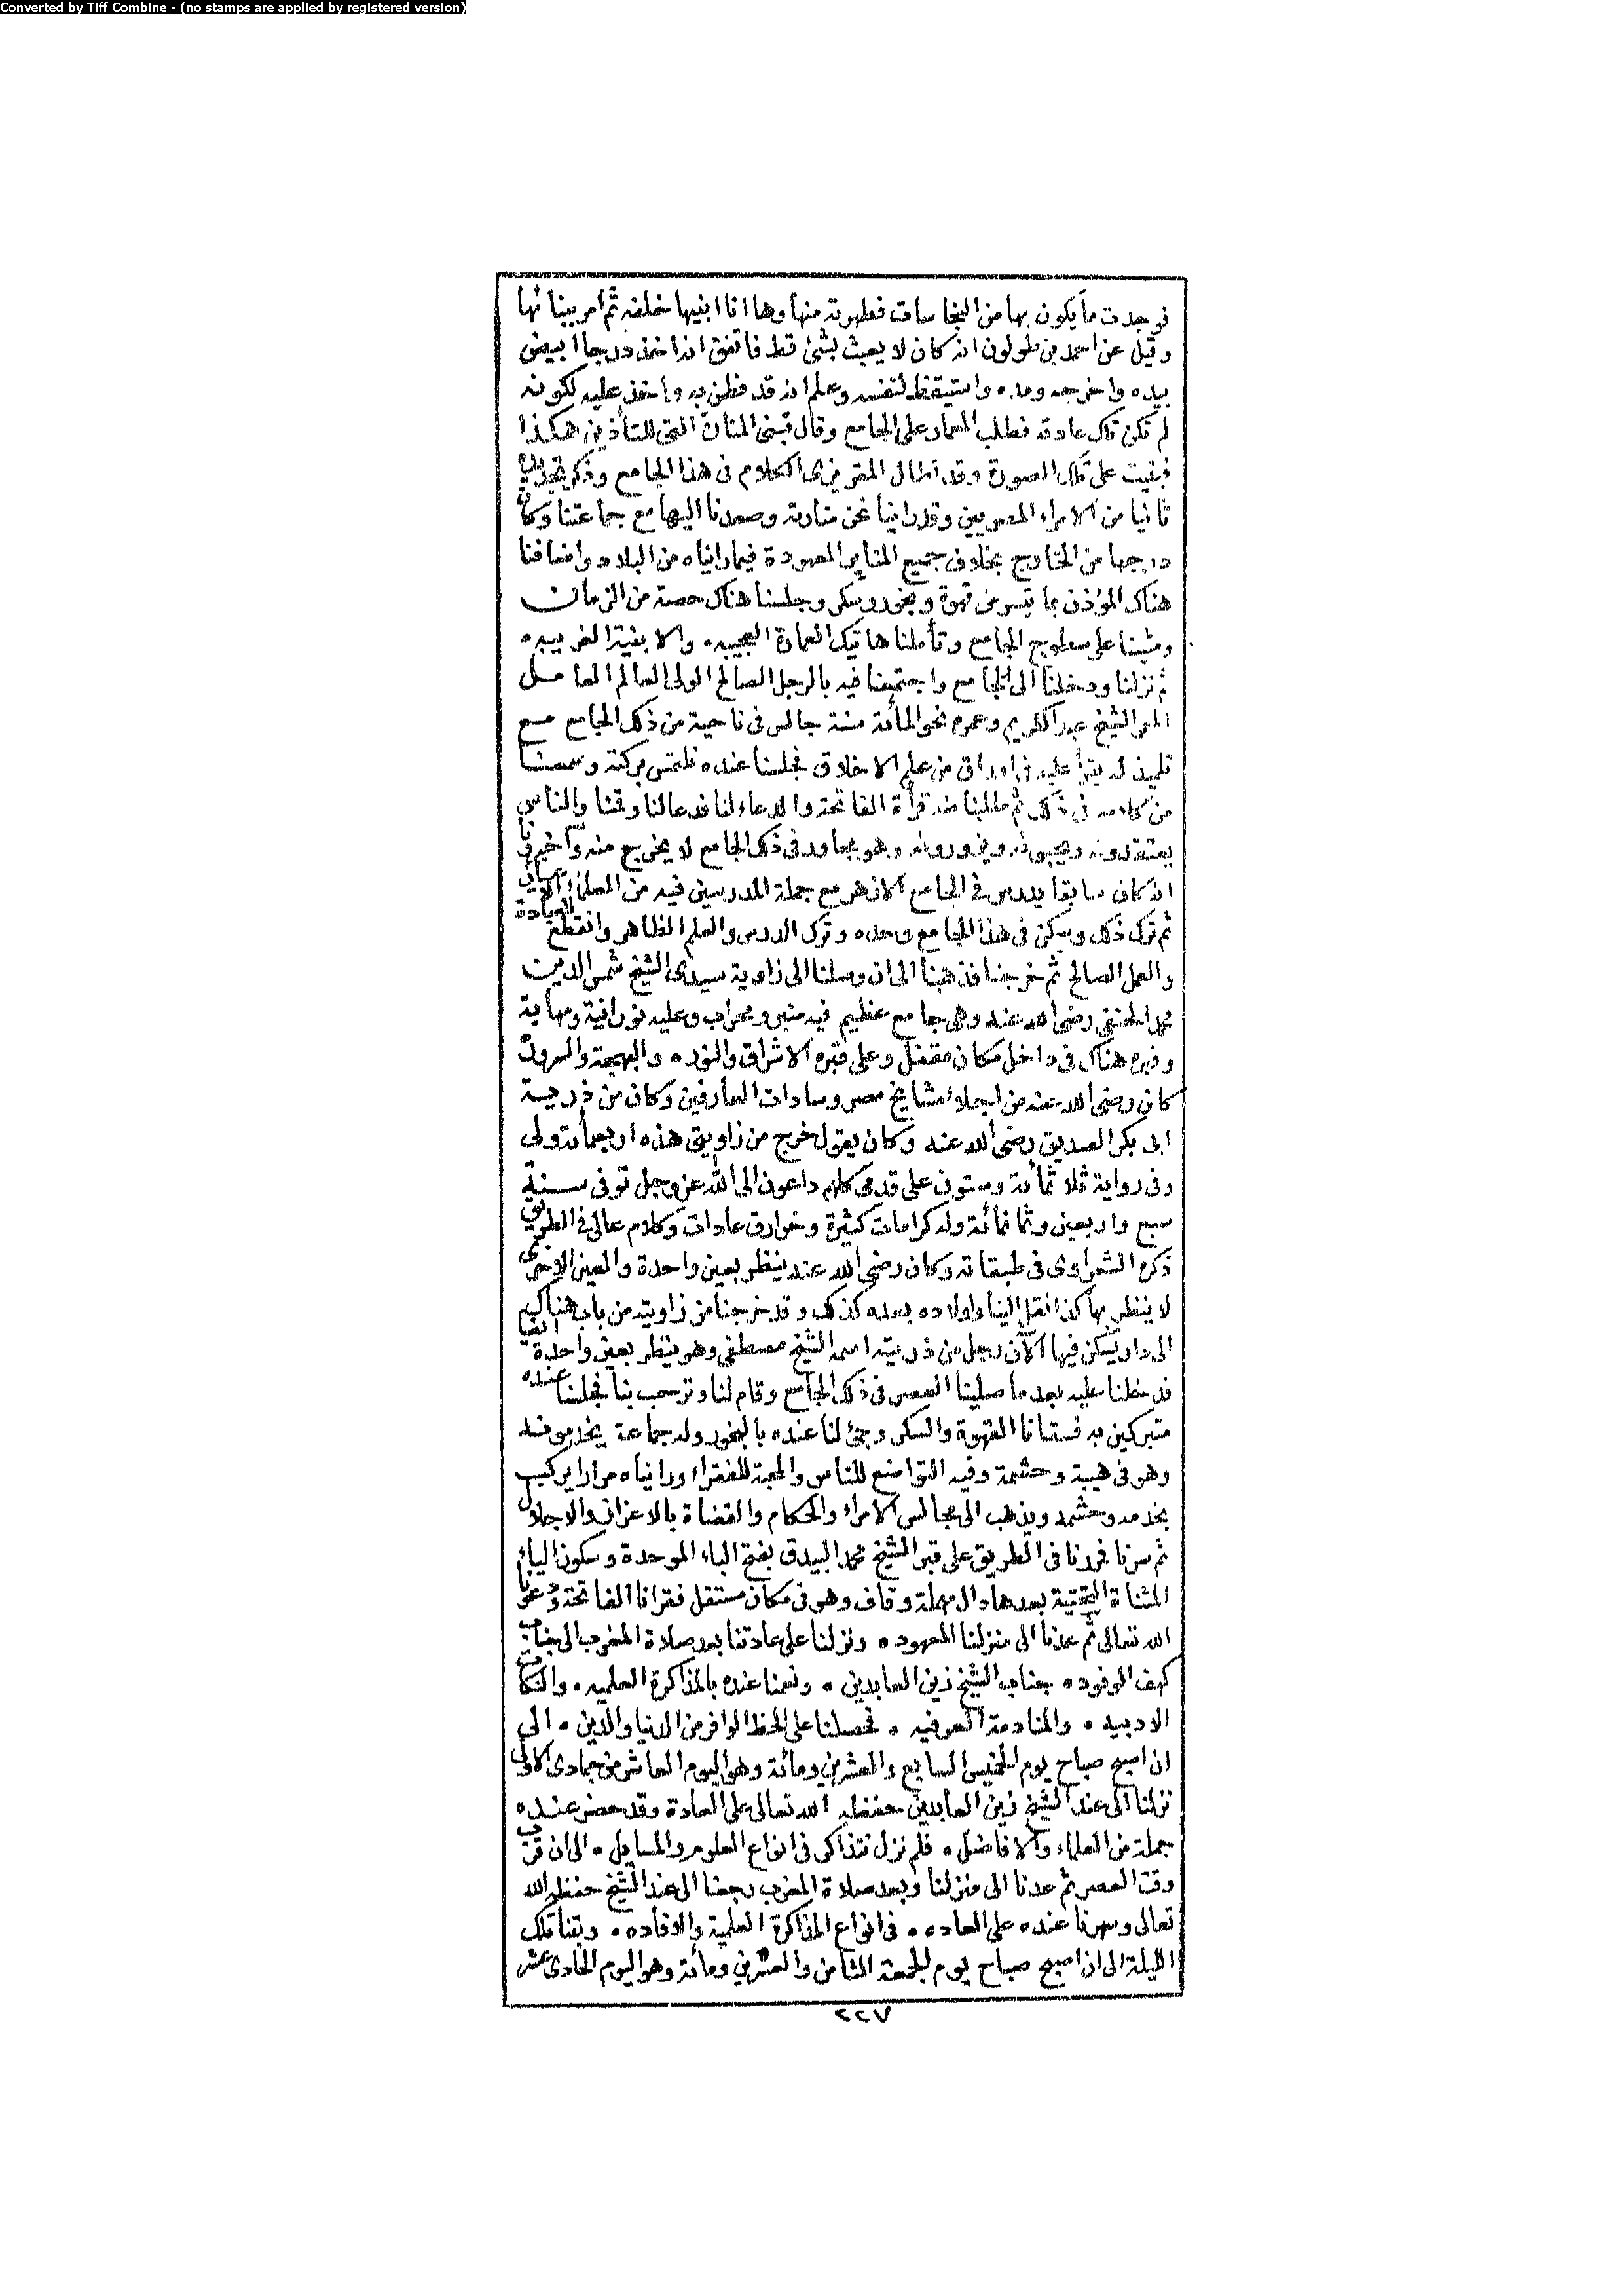 Converted by Tiff Combine - (no stamps are applied by registered version)
فوجدت ما يكون بها من النجاسات فطهرته منها وها انا ابنيها خلفه ثم امر ببنائها
وقيل عن احمد بن طولون انه كان لا يعبث بشئ قط فاتفق انه اخذ درجا ابيض
بيده واخرجه ومده واستيقظ لنفسه وعلم انه قد فطن به واخذ عليه لكونه
لم تكن تلك عادته فطلب المعمار على الجامع وقال تبنى المنارة التى للتأذين هكذا
فبنيت على تلك الصورة وقد اطال المقريزى الكلام فى هذا الجامع وذكر تجديده
ثانيا من الامراء المصريين وقد راينا نحن منارته وصعدنا اليها مع جماعتنا وكان
درجها من الخارج بخلاف جميع المناير المعهودة فيما رايناه من البلاد واضافنا
هناك المؤذن بما تيسر من قهوة وبخور وسكر وجلسنا هناك حصة من الزمان
ومشينا على سطوح الجامع وتأملنا هاتيك العمارة العجيبه ۰ والابنية الغريبه ۰
ثم نزلنا ودخلنا الى الجامع واجتمعنا فيه بالرجل الصالح الولى العالم العامل
الشيخ عبد الكريم وعمره نحو المائة سنة جالس فى ناحية من ذلك الجامع مع
تلميذ له يقرأ عليه فى اوراق من علم الاخلاق فجلسنا عنده نلتمس بركته وسمعنا
من كلامه فى ذلك ثم طلبنا منه قرأة الفاتحة والدعاء لنا فدعا لنا وقمنا والناس
يعتقدونه ويحبونه ويزورونه وهو مجاور فى ذلك الجامع لا يخرج منه واخبرونا
انه كان سابقا يدرس فى الجامع الازهر مع جملة المدرسين فيه من العلماء
ثم ترك ذلك وسكن فى هذا الجامع وحده وترك الدرس والعلم الظاهر وانقطع للعبادة
والعمل الصالح ثم خرجنا فذهبنا الى ان وصلنا الى زاوية سيدى الشيخ شمس الدين
محمد الحنفى رضى الله عنه وهى جامع عظيم فيه منبر ومحراب وعليه نورانية ومهابة
وقبره هناك فى داخل مكان مقفل وعلى قبره الاشراق والنور ۰ والبهجة والسرور
كان رضى الله عنه من اجلاء مشايخ مصر وسادات العارفين وكان من ذرية
ابى بكر الصديق رضى الله عنه وكان يقول خرج من زاويتى هذه اربعمأة ولى
وفى رواية ثلاثمائة وستون على قدمى كلهم داعون الى الله عز وجل توفى سنة
سبع واربعين وثمانمائة وله كرامات كثيرة وخوارق عادات وكلام عالى فى الطريق
ذكره الشعراوى فى طبقاته وكان رضى الله عنه ينظر بعين واحدة والعين الاخرى
لا ينظر بها كذا نقل الينا واولاده بعده كذلك وقد خرجنا من زاويته من باب هناك
الى دار يسكن فيها الآن رجل من ذريته اسمه الشيخ مصطفى وهو ينظر بعين واحدة ايضا
فدخلنا عليه بعد ما صلينا العصر فى ذلك الجامع وقام لنا وترحب بنا فجلسنا عنده
متبركين به فسقانا القهوة والسكر وجئ لنا عنده بالبخور وله جماعة يخدمونه
وهو فى هيبة وحشمة وفيه التواضع للناس والمحبة للفقراء ورايناه مرارا يركب
بخدمه وحشمه ويذهب الى مجالس الامراء والحكام والقضاة بالاعزاز والاجلال
ثم سرنا فمررنا فى الطريق على قبر الشيخ محمد البيدق بفتح الباء الموحدة وسكون الياء
المثناة التحتية بعدها دال مهملة وقاف وهو فى مكان مستقل فقرانا الفاتحة ودعونا
الله تعالى ثم عدنا الى منزلنا المعهود ۰ ونزلنا على عادتنا بعد صلاة المغرب الى جناب
كهف الوفود ۰ جناب الشيخ زين العابدين ۰ ونعمنا عنده بالمذاكرة العلميه ۰ والنكات
الادبيه ۰ والمنادمة العرفيه ۰ فحصلنا على الحظ الوافر من الدنيا والدين ۰ الى
ان اصبح صباح يوم الخميس السابع والعشرين ومائة وهو اليوم العاشر من جمادى الاولى
نزلنا الى عند الشيخ زين العابدين حفظه الله تعالى على العادة وقد حضر عنده
جملة من العلماء والافاضل ۰ فلم نزل نتذاكر فى انواع العلوم والمسايل ۰ الى ان قرب
وقت العصر ثم عدنا الى منزلنا وبعد صلاة المغرب رجعنا الى عند الشيخ حفظه الله
تعالى وسهرنا عنده على العاده ۰ فى انواع المذاكرة العلمية والافاده ۰ وبتنا تلك
الليلة الى ان اصبح صباح يوم الجمعة الثامن والعشرين ومائة وهو اليوم الحادى عشر
٢٢٧